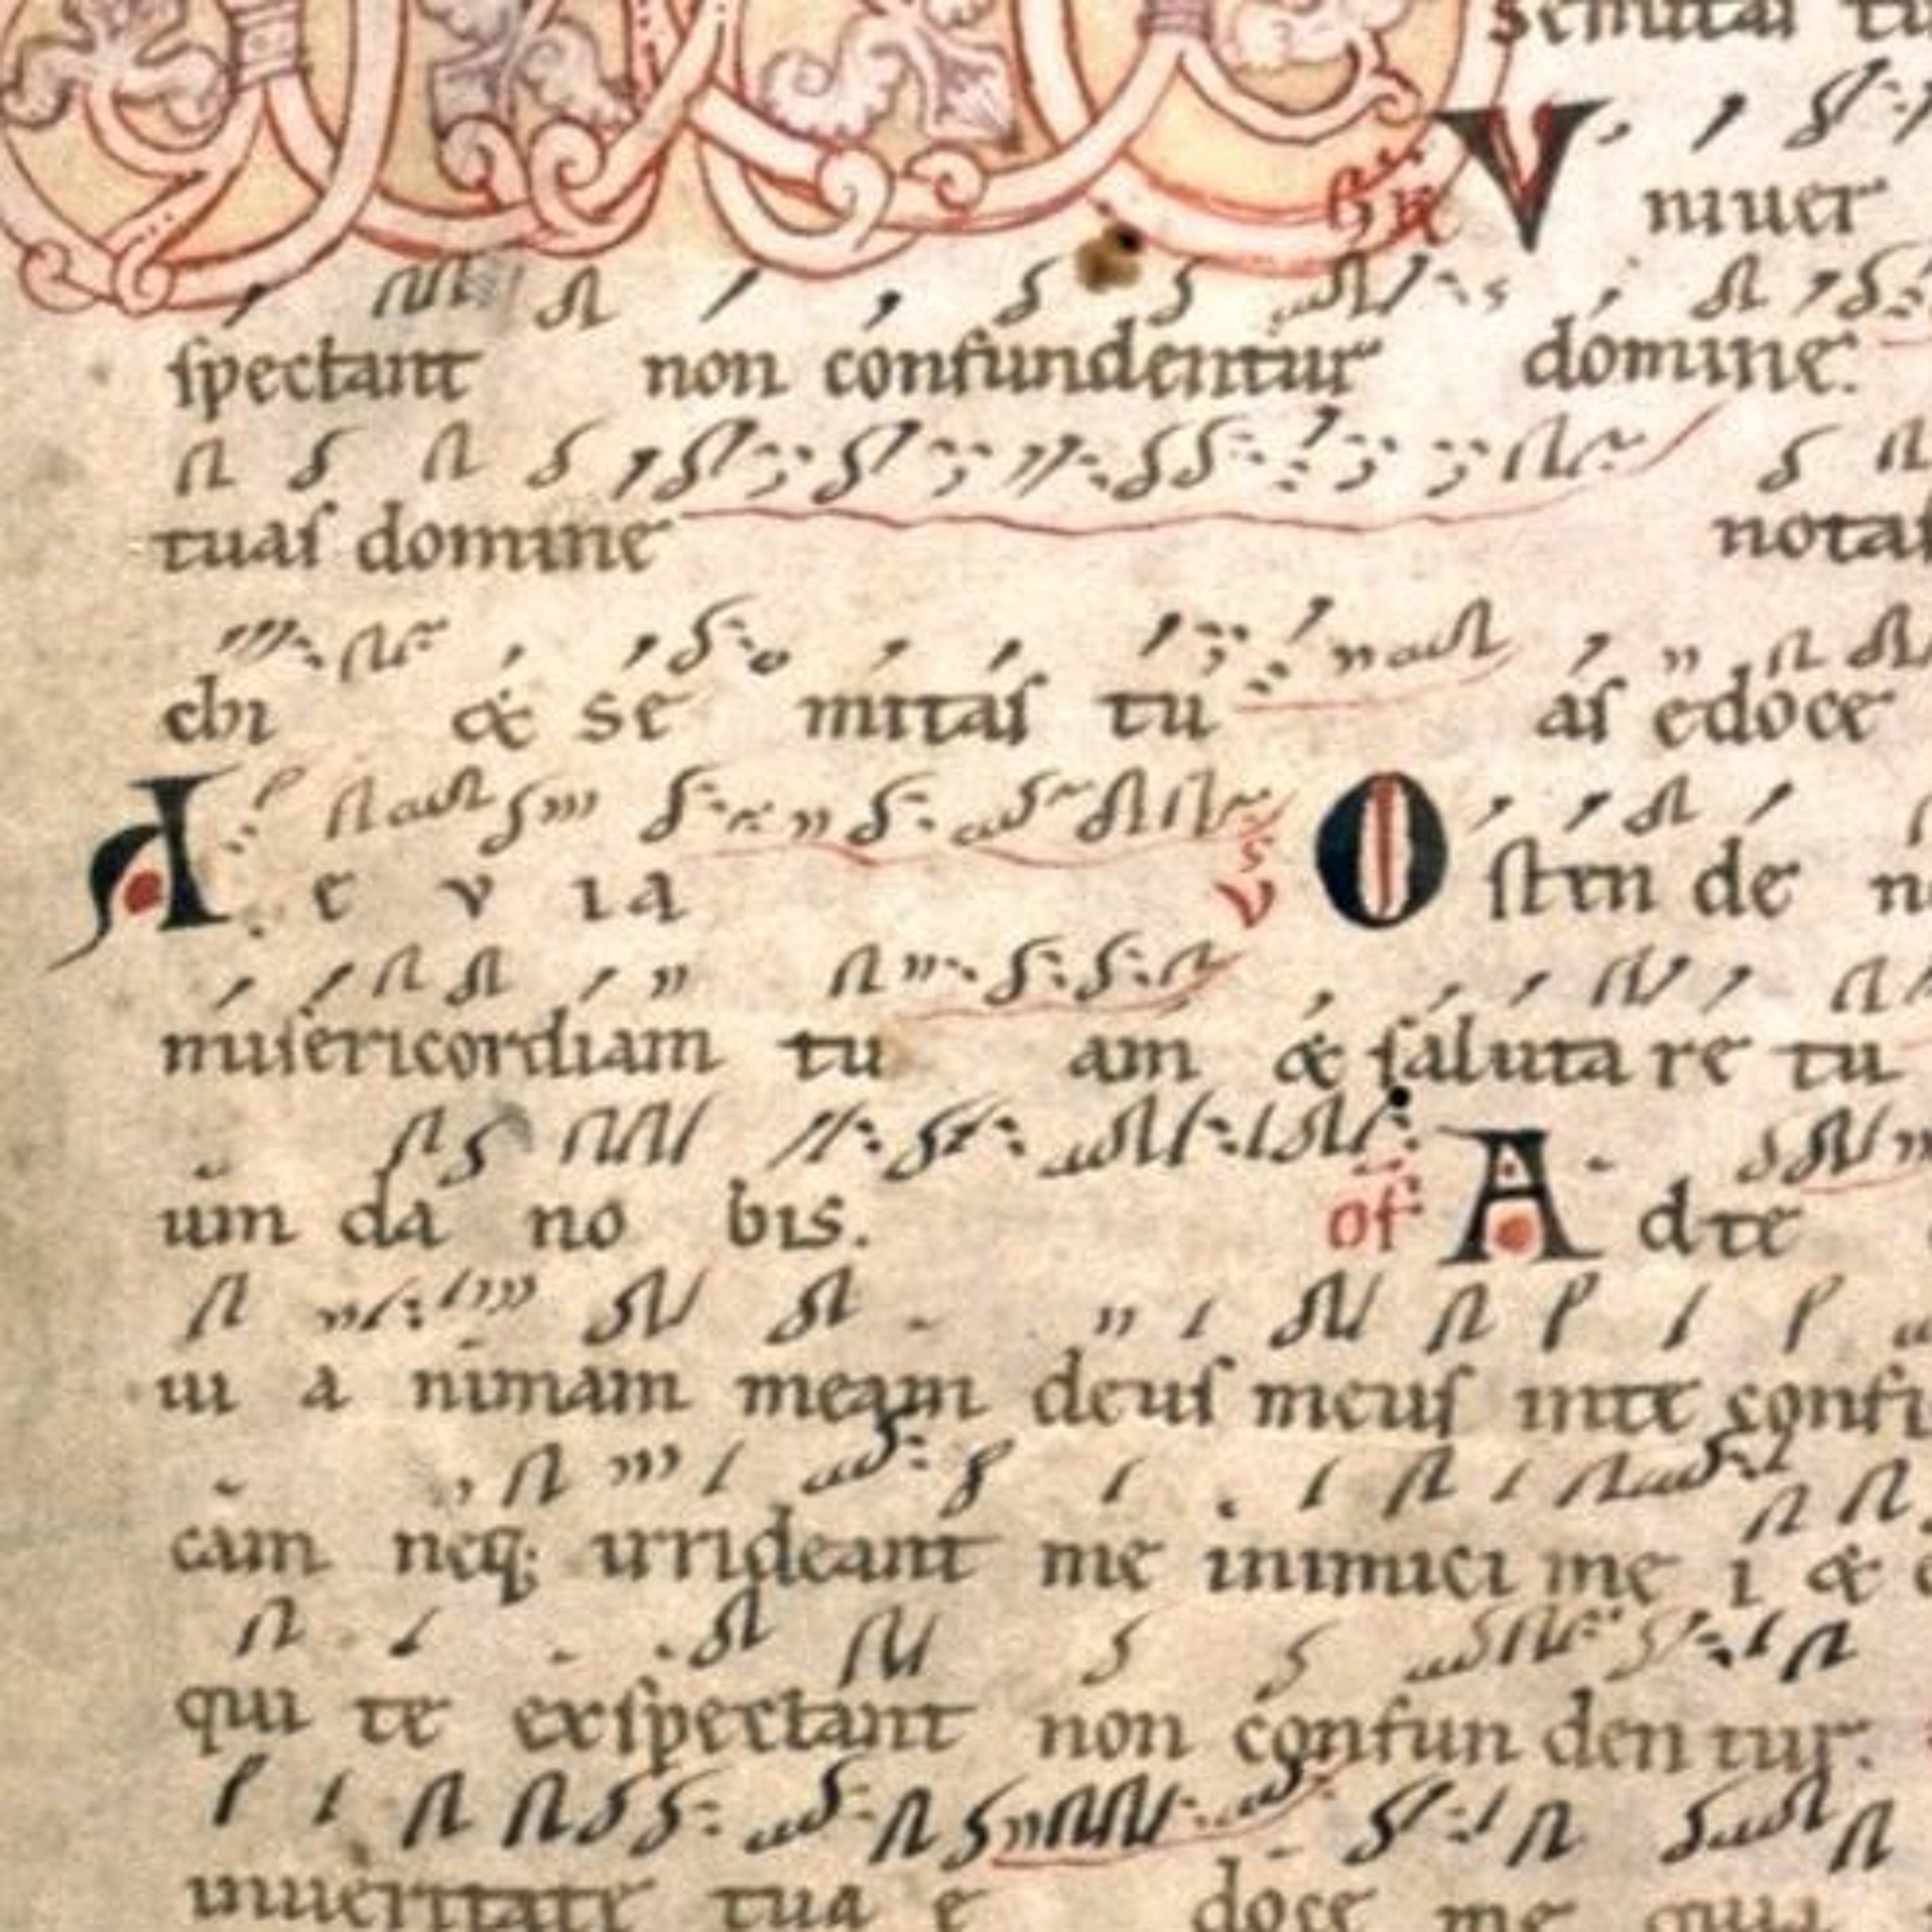 semitaſ tu
GR̄ V niuer
ſpectant non confundentur domine.
tuaſ domine notaſ
chi & se mitaſ tu aſ edoce
A e v ia v̄ O ſten de n
miſericordiam tu am & ſaluta re tu
um da no bis. of A dte
ui a nimam meam deuſ meuſ inte confi
cam neq; irrideant me inimici me i &
qui te exſpectant non confun den tur.
inueritate tua e doce me quia